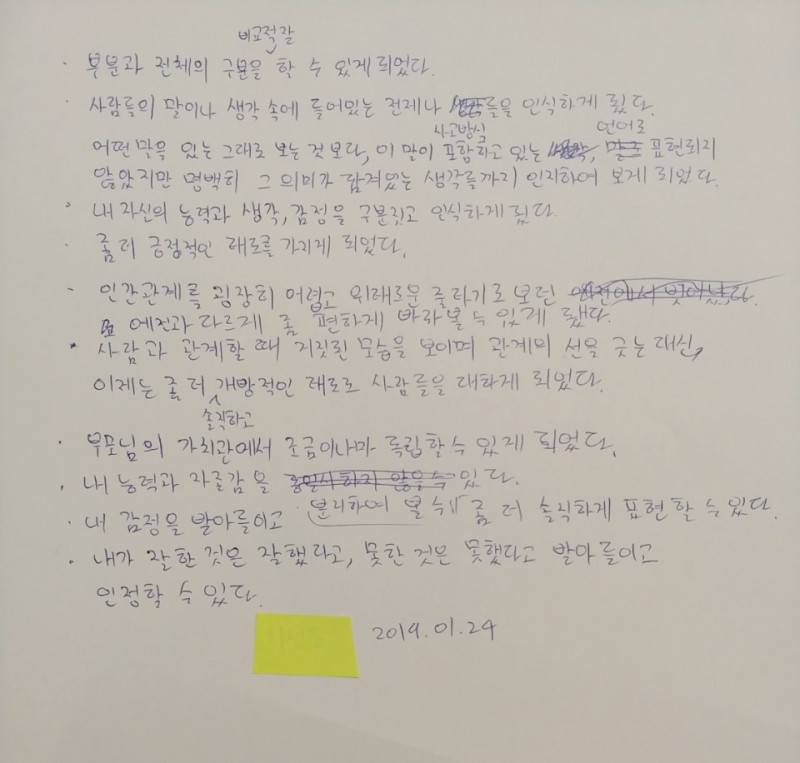 비교적 잘
· 부분과 전체의 구분을 할 수 있게 되었다.
· 사람들의 말이나 생각 속에 들어있는 전제나 들을 인식하게 됐다.
사고방식 언어로
어떤 말을 있는 그대로 보는 것 보다, 이 말이 포함하고 있는 , 표현되지
않았지만 명백히 그 의미가 담겨있는 생각들까지 인지하여 보게 되었다.
· 내 자신의 능력과 생각, 감정을 구분짓고 인식하게 됐다.
· 좀 더 긍정적인 태도를 가지게 되었다.
· 인간관계를 굉장히 어렵고 위태로운 줄타기로 보던 안전에서 벗어났다.
예전과 다르게 좀 편하게 바라볼 수 있게 됐다.
· 사람과 관계할 때 거짓된 모습을 보이며 관계의 선을 긋는 대신,
이제는 좀 더 개방적인 태도로 사람들을 대하게 되었다.
솔직하고
· 부모님의 가치관에서 조금이나마 독립할 수 있게 되었다.
· 내 능력과 자존감을 동일시하지 않을 수 있다.
분리하여 볼 수
· 내 감정을 받아들이고 좀 더 솔직하게 표현할 수 있다.
· 내가 잘한 것은 잘했다고, 못한 것은 못했다고 받아들이고
인정할 수 있다.
2019.01.24